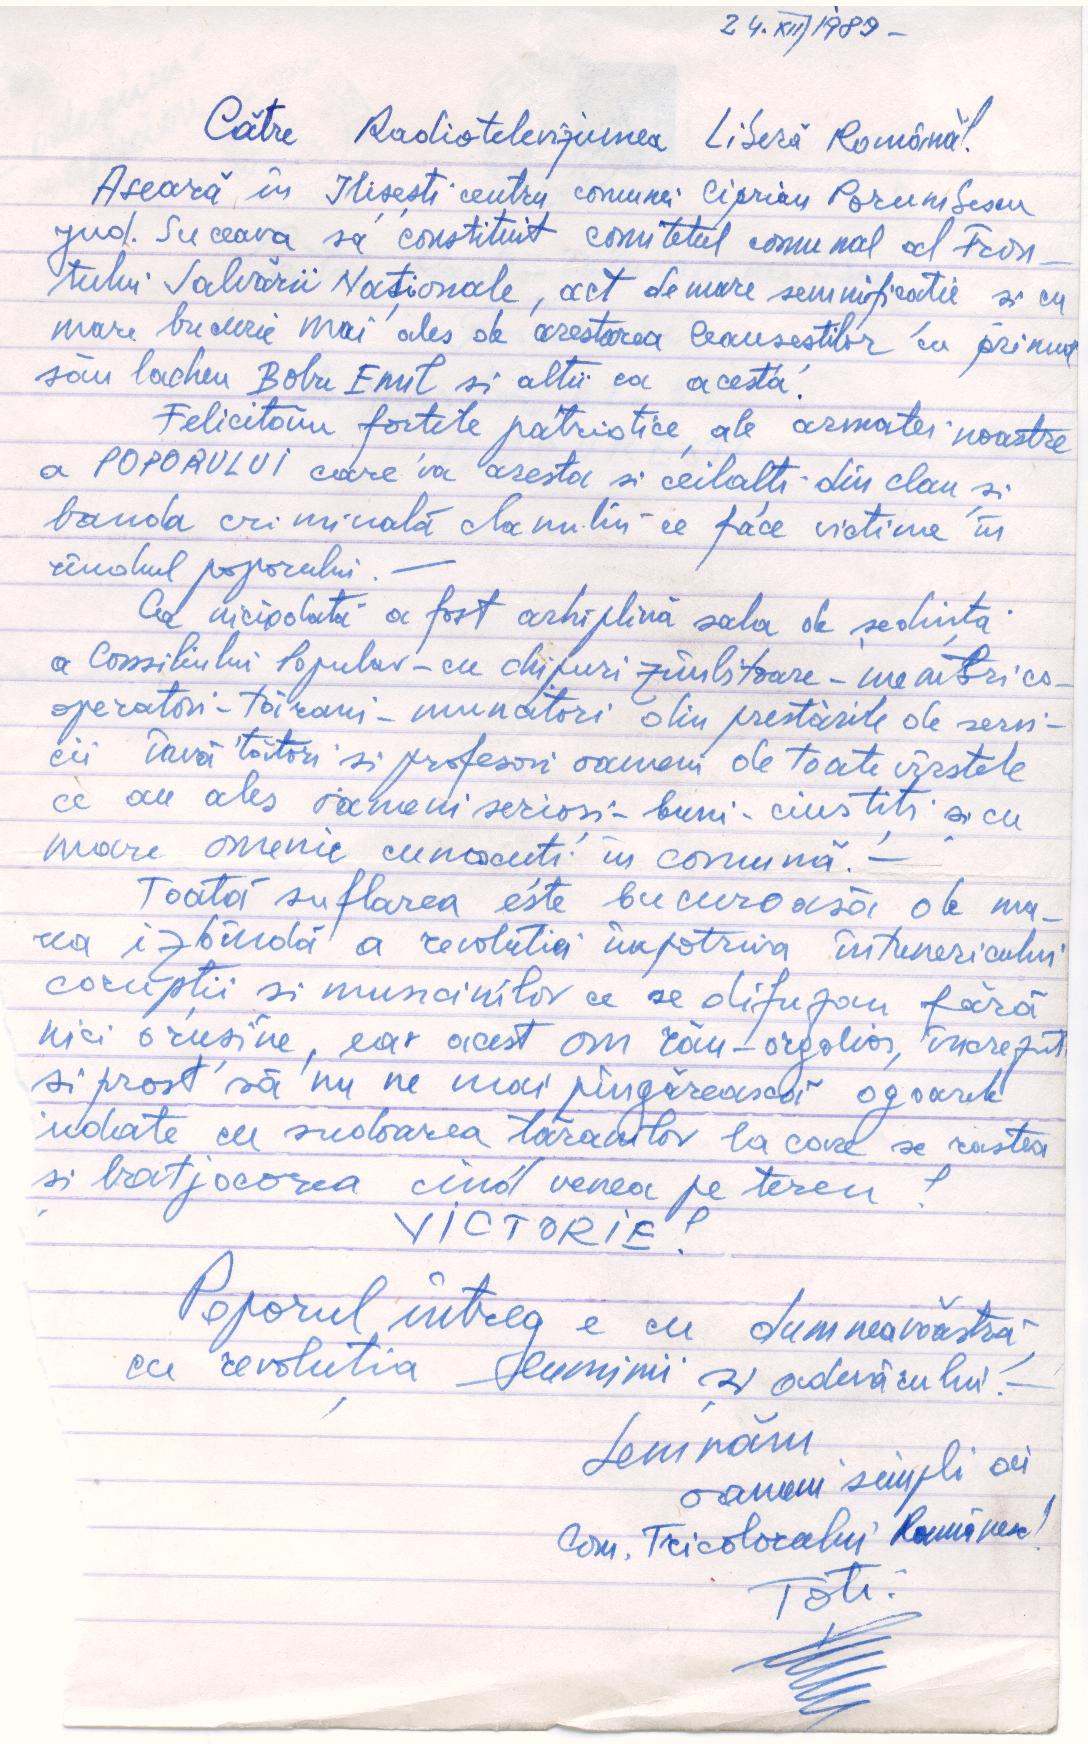 24.XII/1989 -
Către Radioteleviziunea Liberă Română!
Aseară în Ilisești centru comunei Ciprian Porumbescu
jud. Suceava să constituit comitetul comunal al Fron-
tului Salvării Naționale, act de mare semnificatie si cu
mare bucurie mai ales de arestarea Ceausestilor cu primul
său lacheu Bobu Emil si altii ca acestă!
Felicităm fortele patriotice ale armatei noastre
a POPORULUI care va aresta si ceilalti din clan și
banda criminală clanului ce face victime în
rîndul poporului. —
Ca niciodată a fost arhiplină sala de ședintă
a Consiliului Popular - cu chipuri zîmbitoare - membri co-
operatori - tărani - muncitori din prestările de servi-
cii învătători si profesori oameni de toate vîrstele
ce au ales oameni seriosi - buni - cinstiti si cu
mare omenie cunoscuti în comună! —
Toată suflarea este bucuroasă de ma-
rea izbîndă a revolutiei împotriva întunericului
coruptii si minciunilor ce se difuzau fără
nici o rusine, ear acest om rău - orgolios, increzut
si prost să nu ne mai pîngărească ogoarele
udate cu sudoarea tăranilor la care se rastea
si batjocorea cînd venea pe teren!
VICTORIE!
Poporul întreg e cu dumneavoastră,
cu revolutia luminii și adevărului! —
Semnăm
oameni simpli ai
Com. Tricolorului Românesc!
Toti.